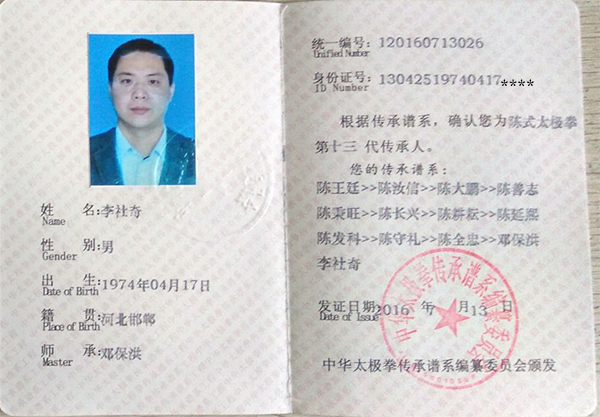 姓 名:李社奇
Name
性 别:男
Gender
出 生:1974年04月17日
Date of Birth
籍 贯:河北邯郸
Place of Birth
师 承:邓保洪
Master
统一编号:120160713026
Unified Number
身份证号:13042519740417****
ID Number
根据传承谱系,确认您为陈式太极拳
第十三 代传承人。
您的传承谱系:
陈王廷>>陈汝信>>陈大鹏>>陈善志
陈秉旺>>陈长兴>>陈耕耘>>陈延熙
陈发科>>陈守礼>>陈全忠>>邓保洪
李社奇
发证日期:2016 年 7 月 13 日
Date of Issue
中华太极拳传承谱系编纂委员会
中华太极拳传承谱系编纂委员会颁发